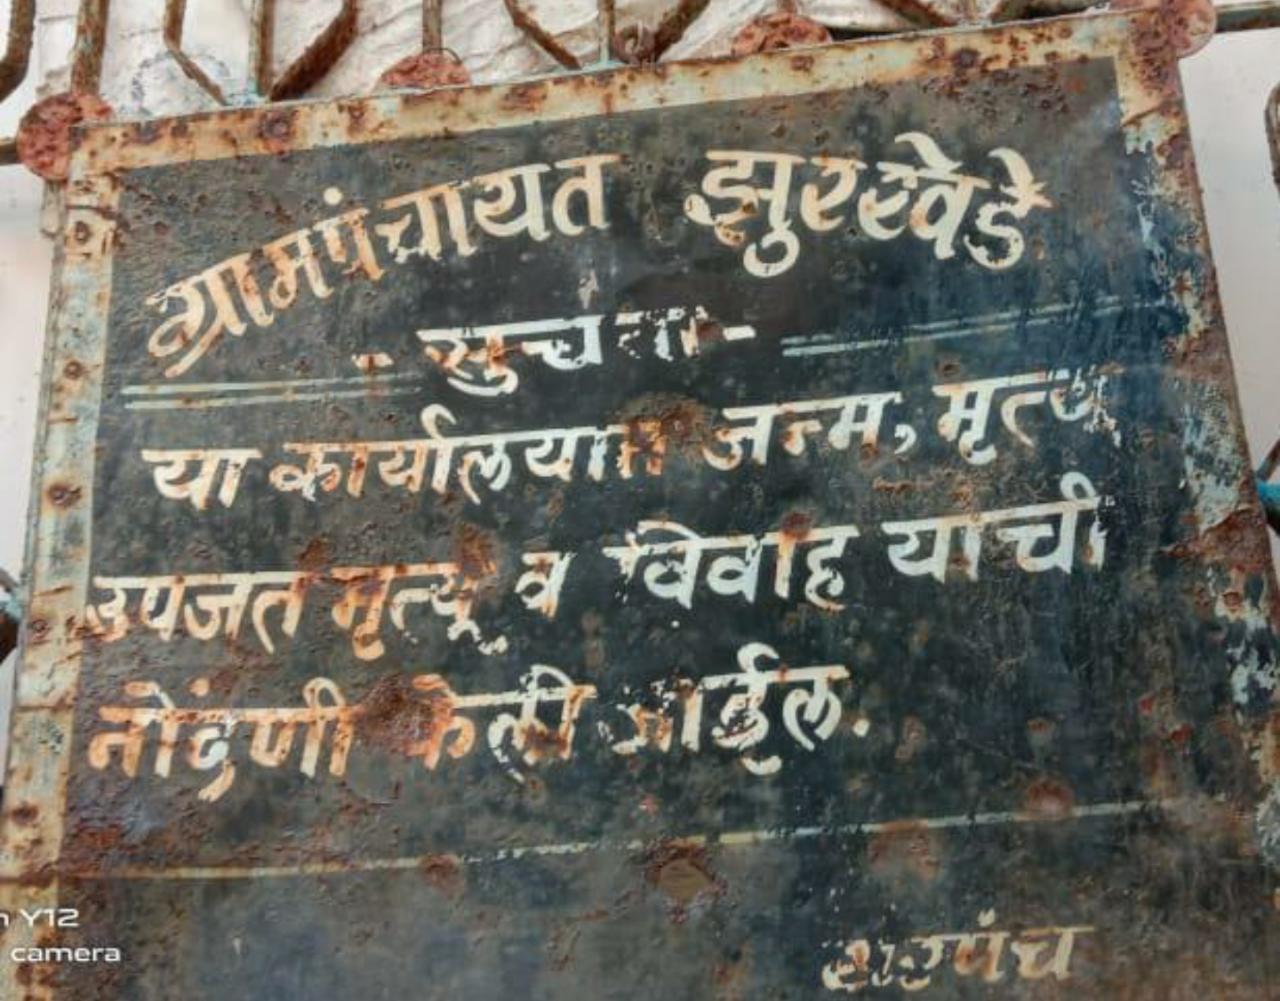 ग्रामपंचायत झुरखेडे
- सुचना -
या कार्यालयात जन्म, मृत्यु
उपजत मृत्यू व विवाह याची
नोंदणी केली जाईल.
सरपंच
Y12
camera